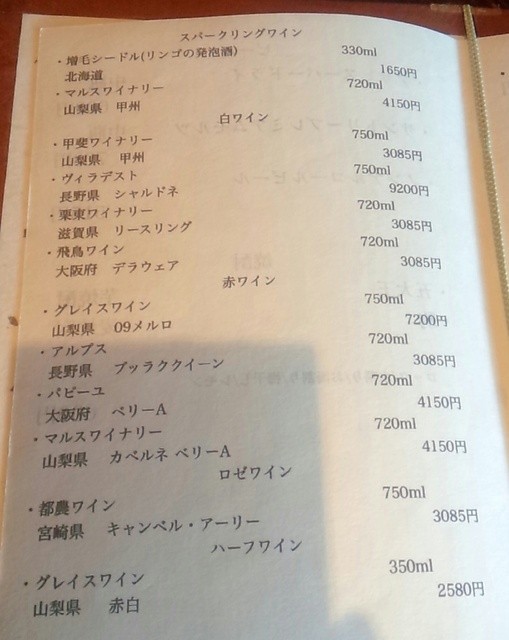 スパークリングワイン
・増毛シードル(リンゴの発泡酒) 330ml
北海道 1650円
・マルスワイナリー 720ml
山梨県 甲州 4150円
白ワイン
・甲斐ワイナリー 750ml
山梨県 甲州 3085円
・ヴィラデスト 750ml
長野県 シャルドネ 9200円
・栗東ワイナリー 720ml
滋賀県 リースリング 3085円
・飛鳥ワイン 720ml
大阪府 デラウェア 3085円
赤ワイン
・グレイスワイン 750ml
山梨県 09メルロ 7200円
・アルプス 720ml
長野県 ブッラククイーン 3085円
・パピーユ 720ml
大阪府 ベリーA 4150円
・マルスワイナリー 720ml
山梨県 カベルネ ベリーA 4150円
ロゼワイン
・都農ワイン 750ml
宮崎県 キャンベル・アーリー 3085円
ハーフワイン
・グレイスワイン 350ml
山梨県 赤白 2580円